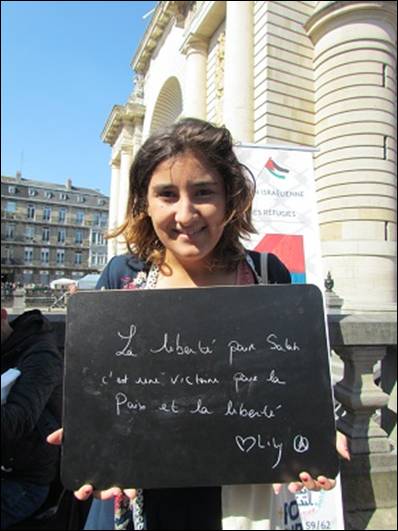 ISRAÉLIENNE
DES RÉFUGIÉS
La liberté pour Salah
c'est une victoire pour la
Paix et la liberté
♡Lily Ⓐ
59/62